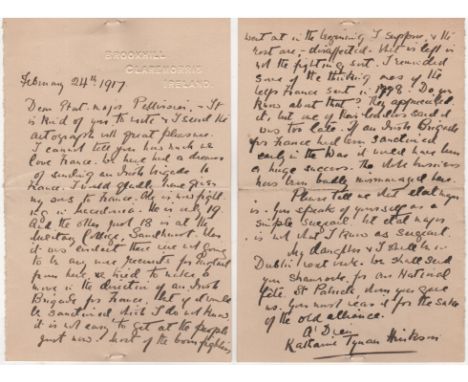 BROOKHILL
CLAREMORRIS
IRELAND.
February 24th 1917
Dear Etat-major Pellissier, - It
is kind of you to write & I send the
autograph with great pleasure.
I cannot tell you how much we
love France. We have had a dream
of sending an Irish Brigade to
France. I would gladly have given
my sons to France. One is now fight-
ing in Macedonia. He is only 19
and the other just 18 is at the
Military College, Sandhurst. When
it was evident there were not going
to be any more recruits for England
from here we tried to make a
move in the direction of an Irish
Brigade for France, but if it would
be sanctioned which I do not know,
it is not easy to get at the people
just now. Most of the born fighters
went out in the beginning I suppose, & the
rest are disaffected. What is left is
not the fighting sort. I reminded
some of the thinking ones of the
help France sent in 1798. Do you
know about that? They appreciated
it, but one of their leaders said it
was too late. If an Irish Brigade
for France had been sanctioned
early in the War it would have been
a huge success. The whole business
has been badly mismanaged here.
Please tell me what etat-major
is. You speak of yourself as a
simple sergeant but etat-major
is not what I know as sergeant.
My daughter & I shall be in
Dublin next week. We shall send
you shamrock, for our National
fête. St Patrick whom you gave
us. You must wear it for the sake
of the old alliance.
A Dieu
Katharine Tynan Hinkson